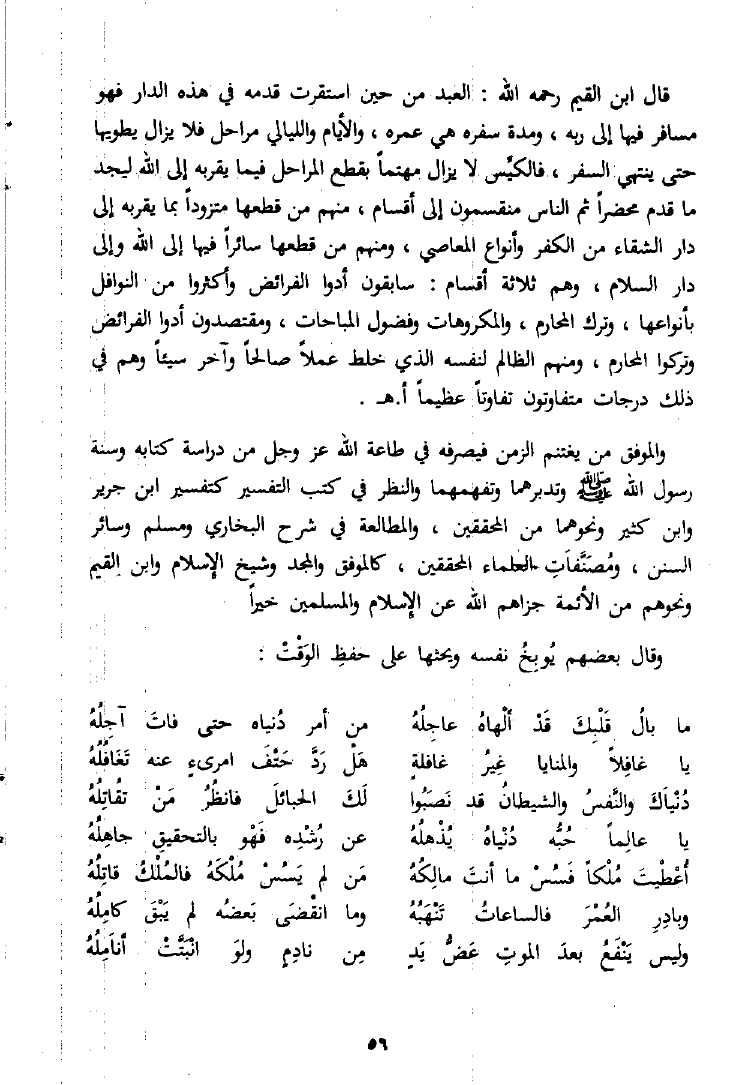 قال ابن القيم رحمه الله : العبد من حين استقرت قدمه في هذه الدار فهو
مسافر فيها إلى ربه ، ومدة سفره هي عمره ، والأيام والليالي مراحل فلا يزال يطويها
حتى ينتهي السفر ، فالكَيِّس لا يزال مهتماً بقطع المراحل فيما يقربه إلى الله ليجد
ما قدم محضراً ثم الناس منقسمون إلى أقسام ، منهم من قطعها متزوداً بما يقربه إلى
دار الشقاء من الكفر وأنواع المعاصي ، ومنهم من قطعها سائراً فيها إلى الله وإلى
دار السلام ، وهم ثلاثة أقسام : سابقون أدوا الفرائض وأكثروا من النوافل
بأنواعها ، وترك المحارم ، والمكروهات وفضول المباحات ، ومقتصدون أدوا الفرائض
وتركوا المحارم ، ومنهم الظالم لنفسه الذي خلط عملاً صالحاً وآخر سيئاً وهم في
ذلك درجات متفاوتون تفاوتاً عظيماً أ.هـ .
والموفق من يغتنم الزمن فيصرفه في طاعة الله عز وجل من دراسة كتابه وسنة
رسول الله ﷺ وتدبرهما وتفهمهما والنظر في كتب التفسير كتفسير ابن جرير
وابن كثير ونحوهما من المحققين ، والمطالعة في شرح البخاري ومسلم وسائر
السنن ، ومُصَنَّفَاتِ العلماء المحققين ، كالموفق والمجد وشيخ الإسلام وابن القيم
ونحوهم من الأئمة جزاهم الله عن الإسلام والمسلمين خيراً
وقال بعضهم يُوبِخُ نفسه ويحثها على حفظِ الوَقْتْ :
ما بالُ قَلْبِكَ قَدْ ألْهاهُ عاجِلُهُ من أمر دُنياه حتى فاتَ آجِلُهُ
يا غافِلاً والمنايا غَيرُ غافلةٍ هَلْ رَدَّ حَتْفَ امرىءٍ عنه تَغَافُلُهُ
دُنْيَاكَ والنَّفسُ والشيطانُ قد نَصَبُوا لَكَ الحبائلَ فانظُرُ مَنْ تُقاتِلُهُ
يا عالِماً حُبُّه دُنْياهُ يُذْهلُهُ عن رُشْدِه فَهْو بالتحقيقِ جاهِلُهُ
أُعْطِيتَ مُلْكاً فَسُسْ ما أنتَ مالِكُهُ مَن لم يَسُسْ مُلْكَهُ فالمُلْكُ قاتِلُهُ
وبادِرِ العُمْرَ فالساعاتُ تَنْهَبُهُ وما انْقْضَى بَعضُه لم يَبْقَ كامِلُهُ
وليس يَنْفَعُ بعدَ الموتِ عَضُّ يَدٍ مِن نادِمٍ ولوَ انْبَتَّتْ أنَامِلُهُ
٥٦